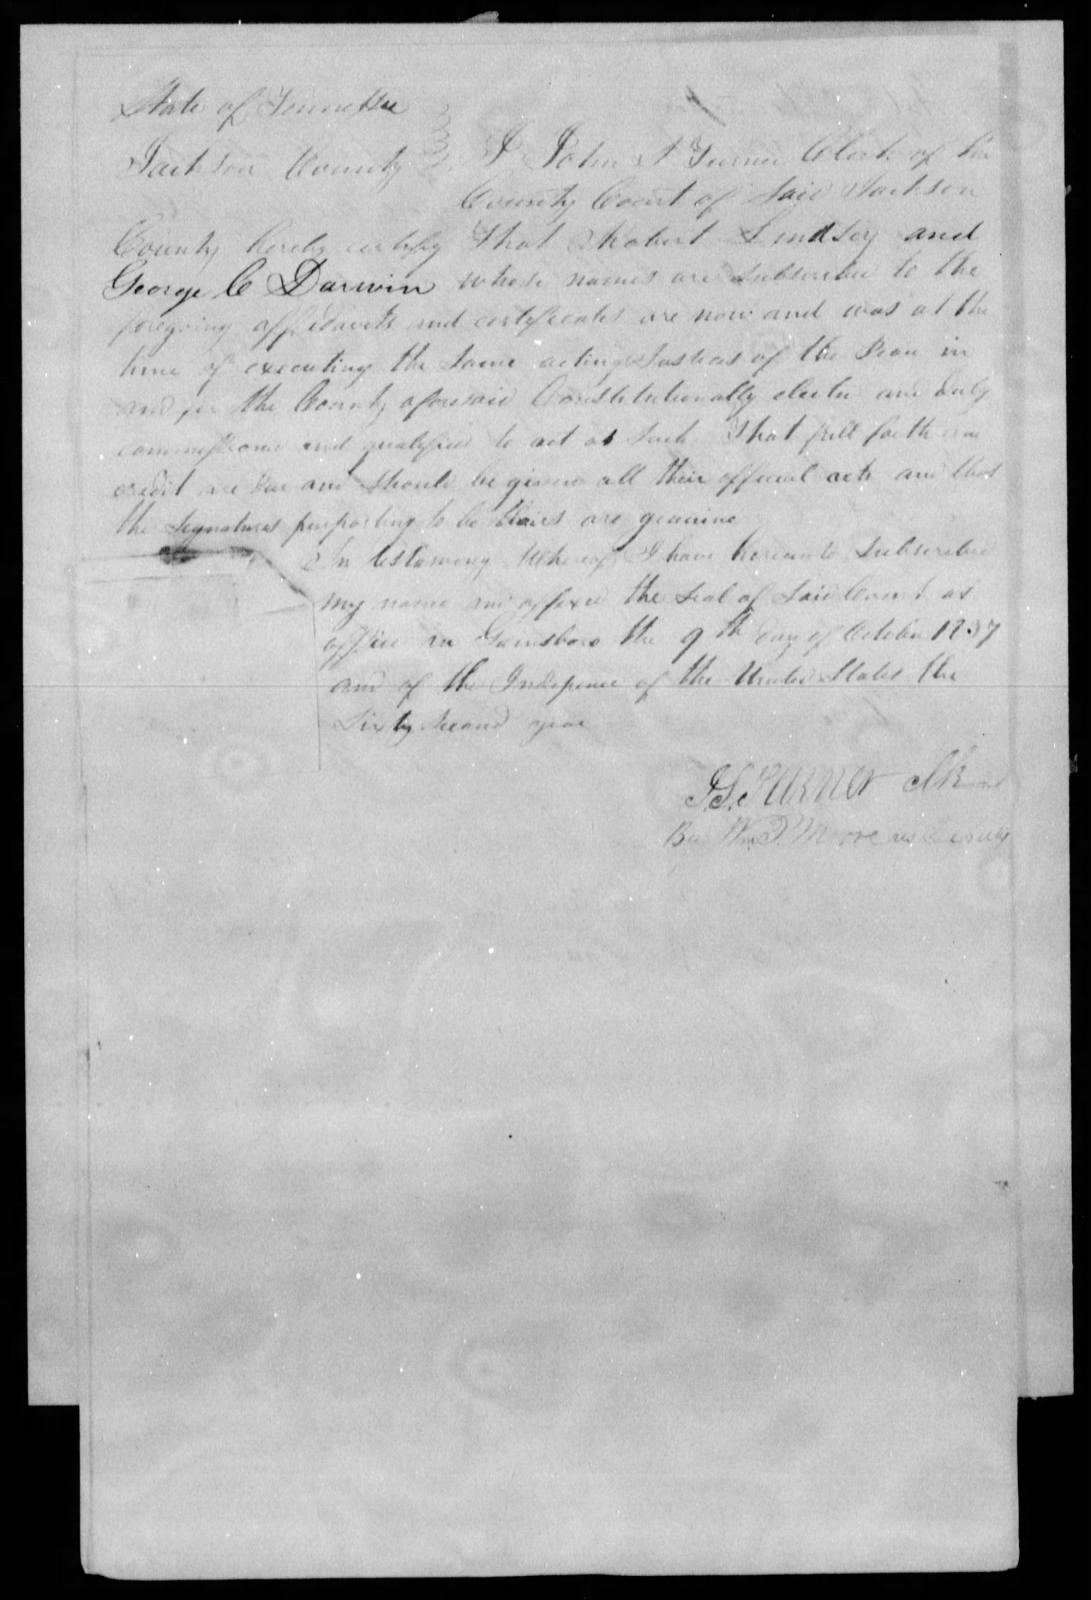 State of Tennessee
Jackson County I John S Turner Clerk of the
County Court of Said Jackson
County hereby certify that Robert Lindsey and
George C Darwin whose names are Subscribed to the
foregoing affidavits and certificates are now and was at the
time of executing the Same acting Justices of the Peace in
and for the County aforesaid Constitutionally elected and duly
commissioned and qualified to act as Such That full faith and
credit are due and should be given all their official acts and that
the Signatures purporting to be theirs are genuine
In testimony Whereof I have hereunto Subscribed
my name and affixed the Seal of Said Court at
office in Gainsboro the 9th day of October 1837
and of the Indepence of the United States the
Sixty Second year
J.S. Turner Clk
By Wm T. Moore his Deputy